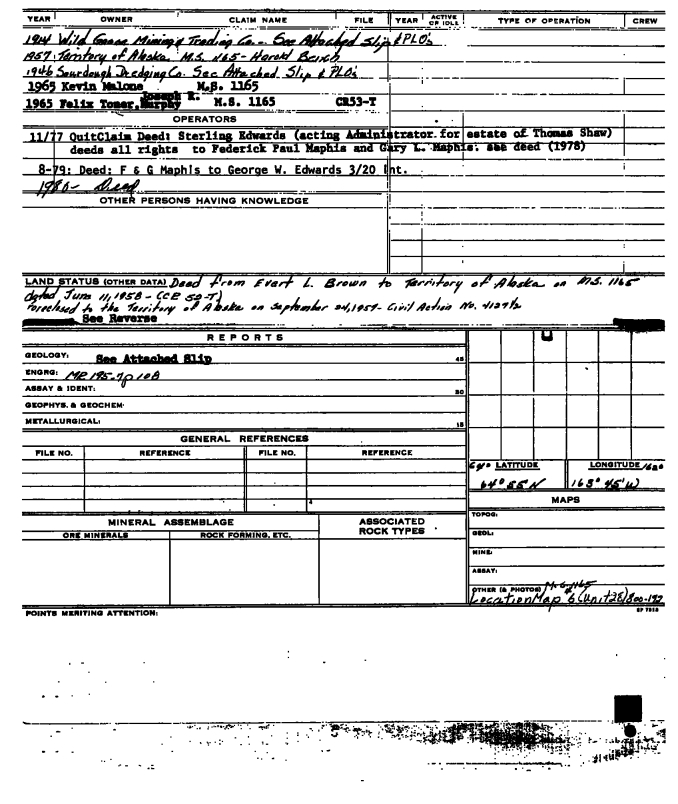 YEAR OWNER CLAIM NAME FILE YEAR ACTIVE OR IDLE TYPE OF OPERATION CREW
1914 Wild Goose Mining & Trading Co.. See Attached Slip & PLO's
1957: Territory of Alaska. M.S. 1165 - Harold
1946 Sourdough Dredging Co. See Attached Slip & PLO's
1965 Kevin Malone M.S. 1165
1965 Felix Toner, Joseph R. Murphy M.S. 1165 CR53-T
OPERATORS
11/77 QuitClaim Deed: Sterling Edwards (acting Administrator for estate of Thomas Shaw)
deeds all rights to Federick Paul Maphis and Gary L. Maphis. see deed (1978)
8-79: Deed: F & G Maphis to George W. Edwards 3/20 Int.
1980- Deed
OTHER PERSONS HAVING KNOWLEDGE
LAND STATUS (OTHER DATA) Deed from Evart L. Brown to Territory of Alaska on M.S. 1165
dated June 11, 1958 - (CR 52-T)
Foreclosed to the Territory of Alaska on September 24, 1957- Civil Action No. 4127 1/2
See Reverse
REPORTS
GEOLOGY: See Attached Slip 45
ENGRG: MR 195-7 p 10B
ASSAY & IDENT: 30
GEOPHYS. & GEOCHEM.
METALLURGICAL: 15
GENERAL REFERENCES
FILE NO. REFERENCE FILE NO. REFERENCE
64° LATITUDE LONGITUDE 162°
64° 55' N 163° 45' W
4
MAPS
TOPOG:
MINERAL ASSEMBLAGE ASSOCIATED ROCK TYPES
ORE MINERALS ROCK FORMING, ETC.
GEOL:
MINE:
ASSAY:
OTHER (& PHOTOS) M.S. 1165
Location Map #6 (Unit 28) 800-192
POINTS MERITING ATTENTION: